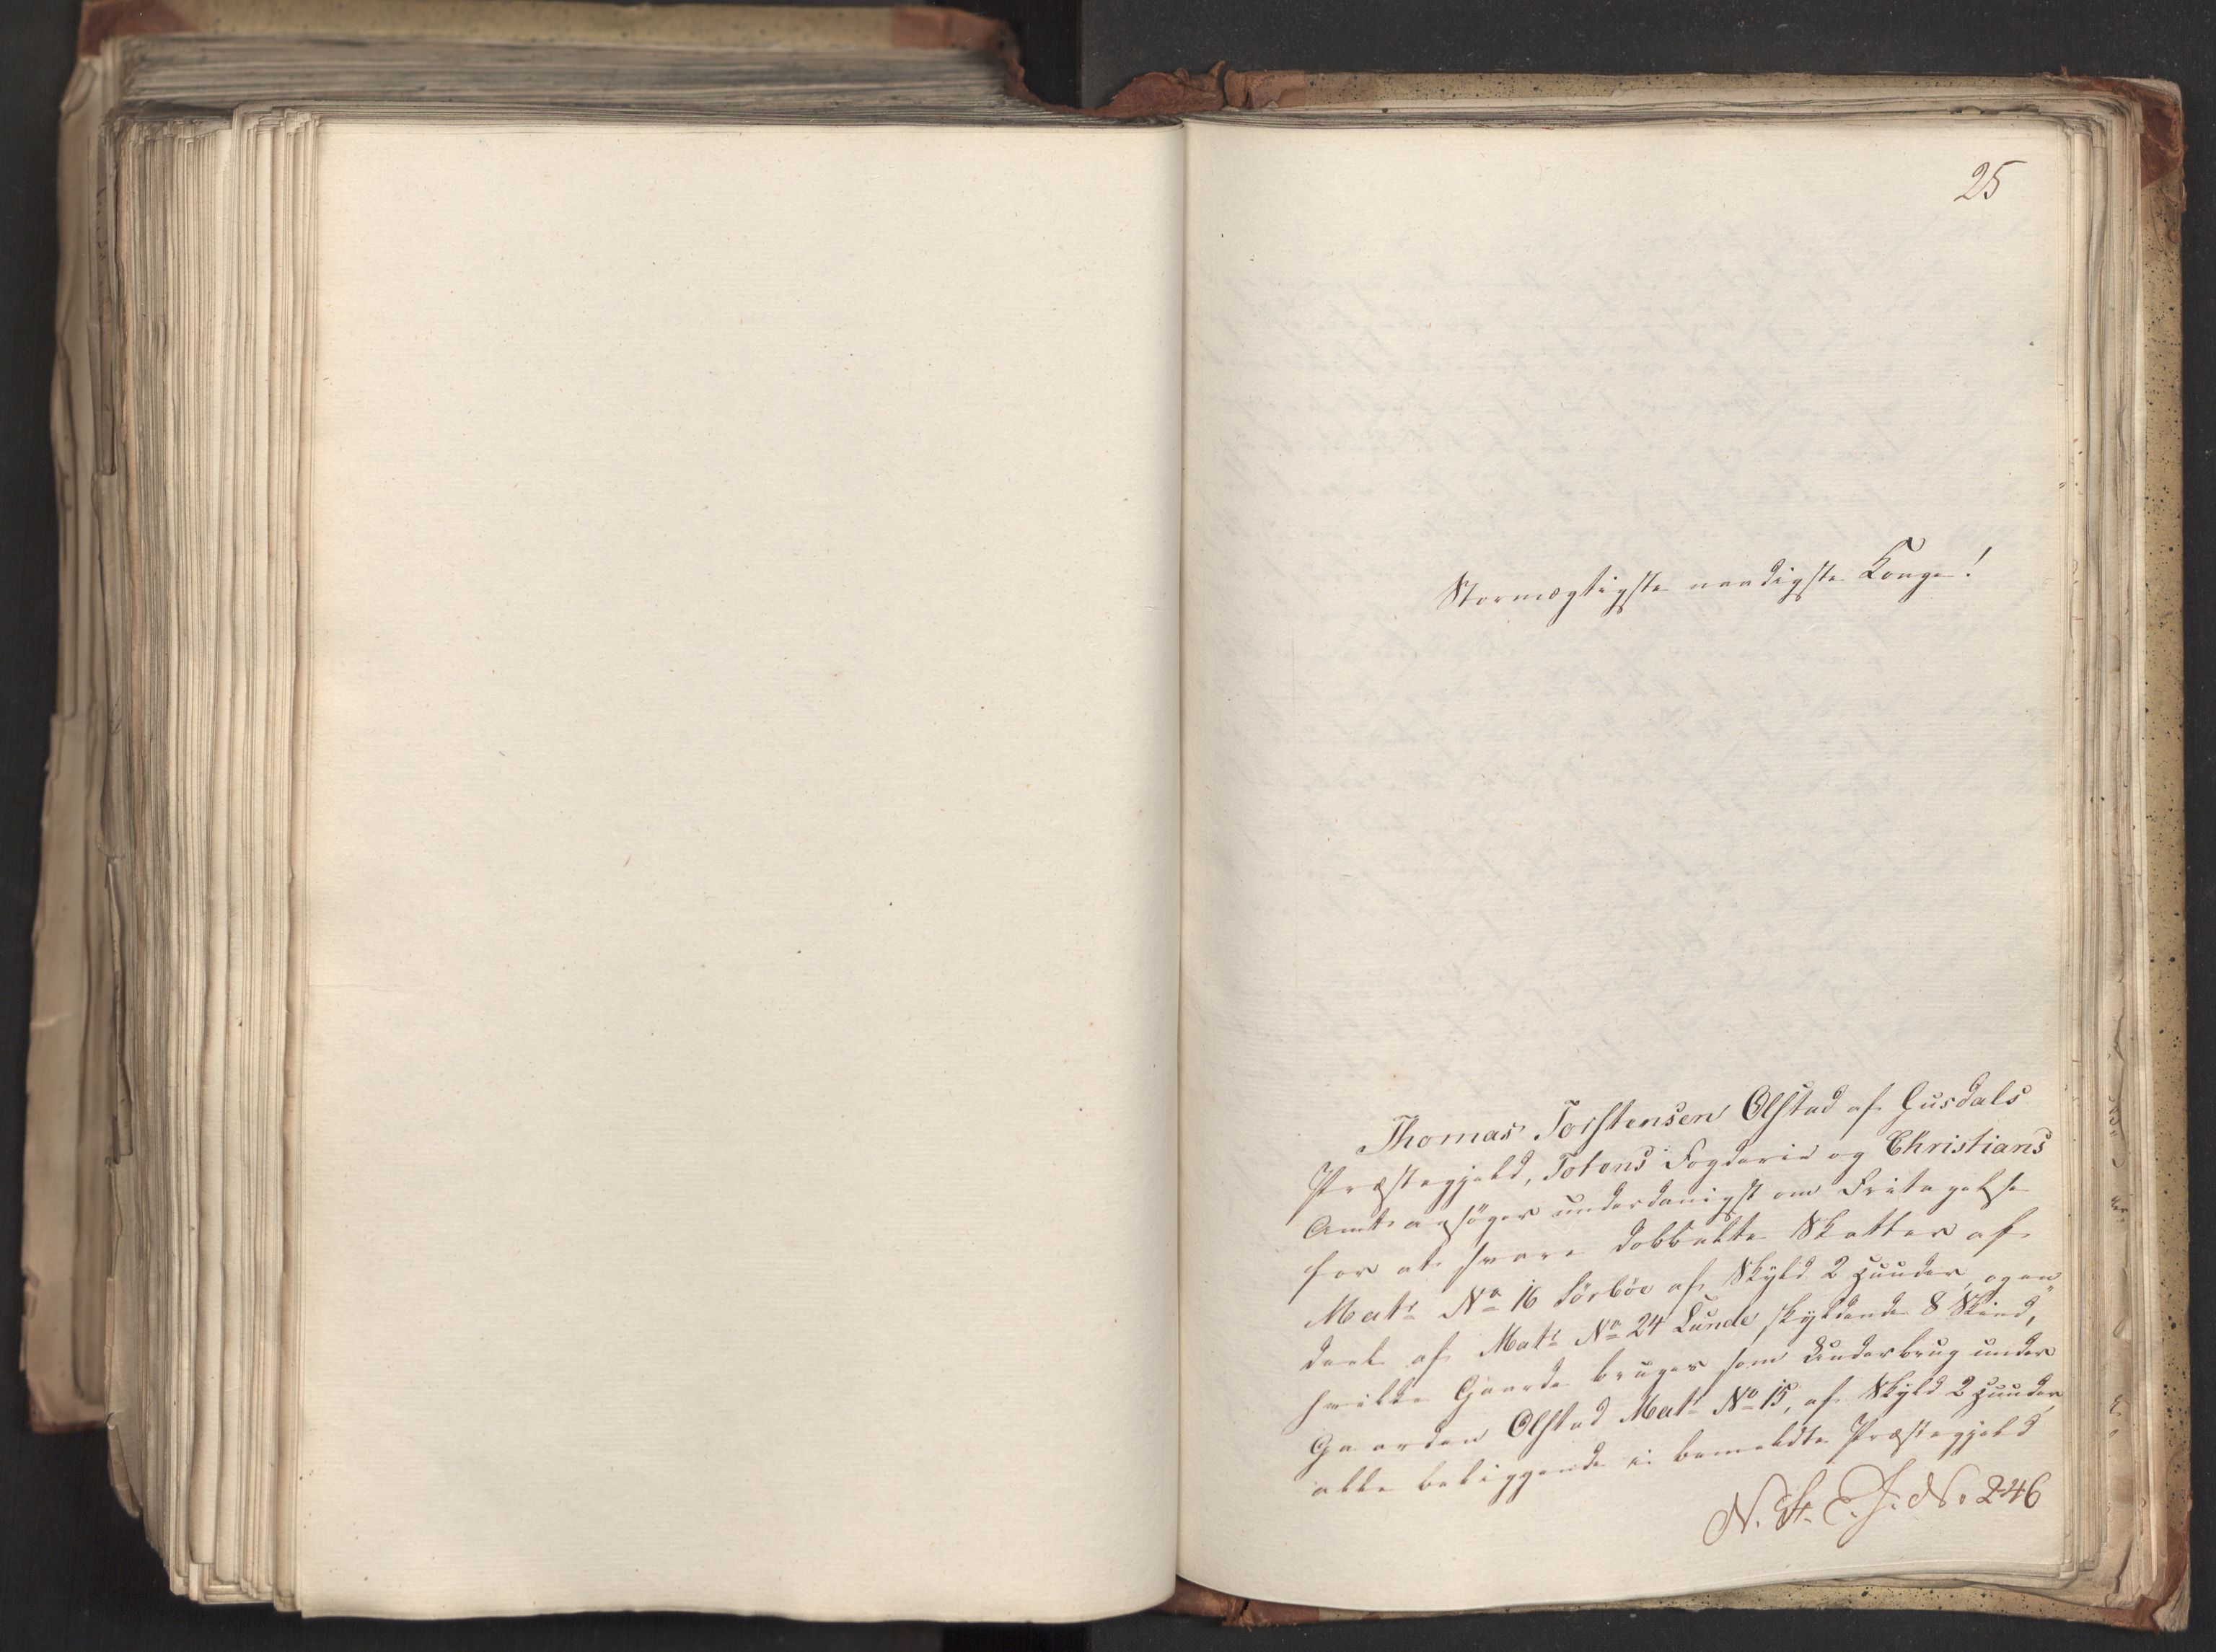 25
Stormægtigste naadigste Konge!
Thomas Torstensen Olstad af Gusdals
Præstegjeld, Totens Fogderie og Christians
Amt ansöger underdanigst om Fritagelse
for at svare dobbelte Skatter af
Matr No 16 Sörböe af Skyld 2 Huuder, og en
deel af Matr No 24 Lunde skyldende 8 Skind,
hvilke Gaarde bruges som Underbrug under
Gaarden Olstad Matr No 15, af Skyld 2 Huuder,
alle beliggende i bemeldte Præstegjeld
N. St. C. J. No. 246